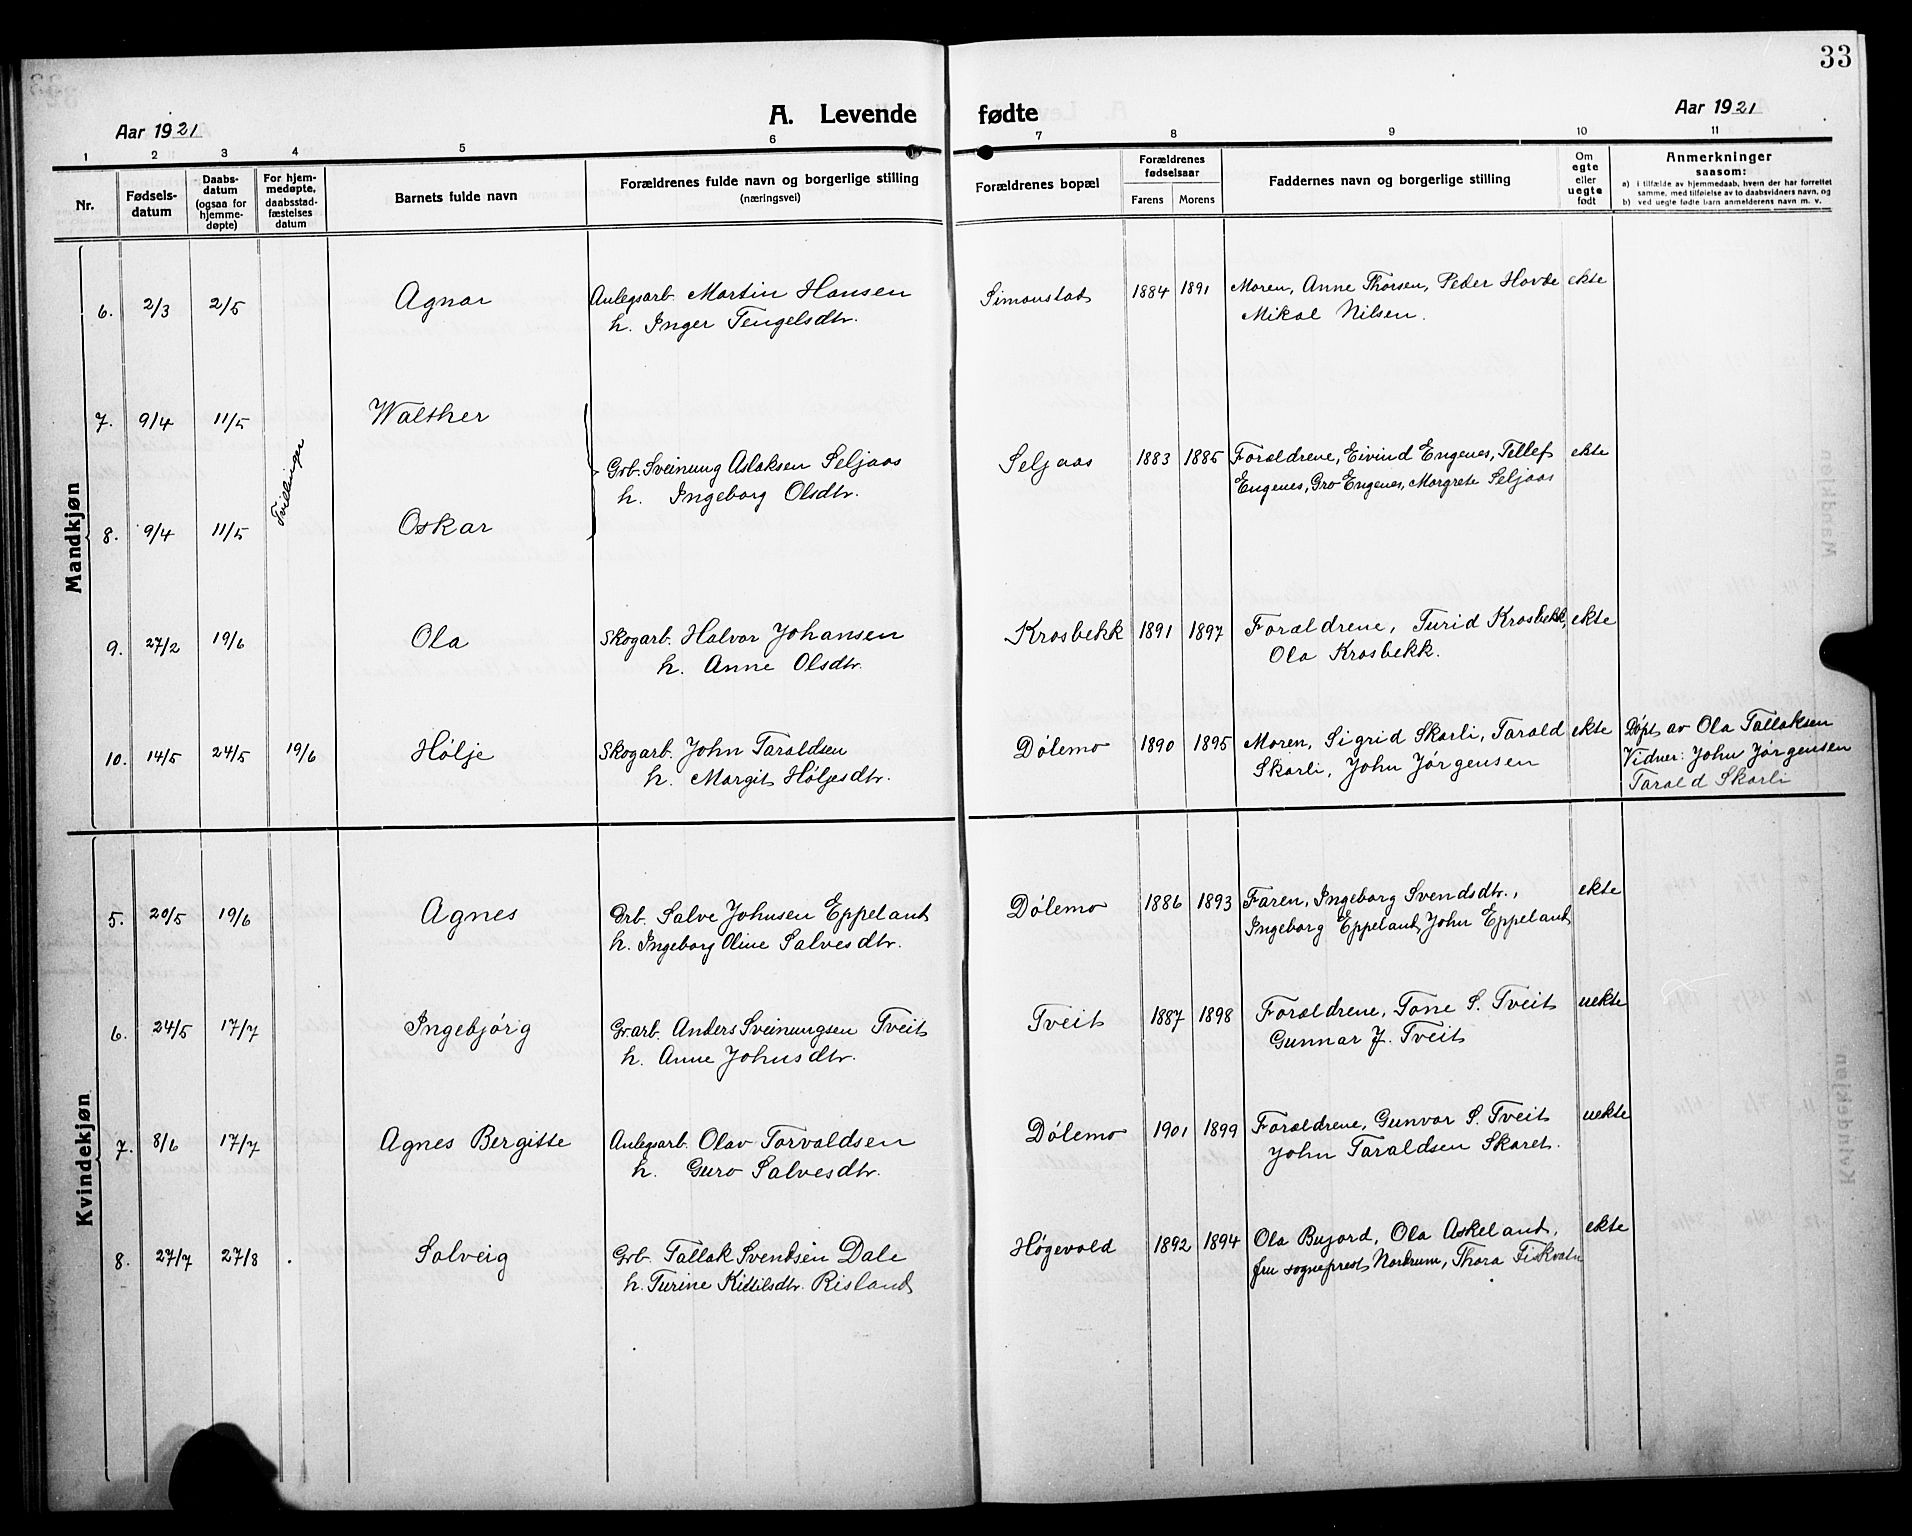 33
A. Levende fødte
Aar 1921
Aar 1921
1 2 3 4 5 6 7 8 9 10 11
Nr.
Fødsels-
datum
Daabs-
datum
(ogsaa for
hjemme-
døpte)
For hjem-
medøpte,
daabsstad-
fæstelses
datum
Barnets fulde navn
Forældrenes fulde navn og borgerlige stilling
(næringsvei)
Forældrenes bopæl
Forældrenes
fødselsaar
Farens Morens
Faddernes navn og borgerlige stilling
Om
egte
eller
uegte
født
Anmerkninger
saasom:
a) i tilfælde av hjemmedaab, hvem der har forrettet
samme, med tilføielse av to daabsvidners navn, og
b) ved uegte fødte barn anmelderens navn m. v.
Mandkjøn
6. 2/3 2/5 Agnar Anlegsarb. Martin Hansen Simonstad 1884 1891 Moren, Anne Thorsen, Peder Hovde ekte
h. Inger Tengelsdtr. Mikal Nilsen.
7. 9/4 11/5 Walther
Tvillinger
Grb. Sveinung Aslaksen Seljaas Seljaas 1883 1885 Foraldrene, Eivind Engenes, Tellef ekte
h. Ingeborg Olsdtr. Engenes, Gro Engenes, Margrete Seljaas
8. 9/4 11/5 Oskar
9. 27/2 19/6 Ola Skogarb. Halvor Johansen Krosbekk 1891 1897 Foraldrene, Turid Krosbekk, ekte
h. Anne Olsdtr. Ola Krosbekk.
10. 14/5 24/5 19/6 Hølje Skogarb. John Taraldsen Dølemo 1890 1895 Moren, Sigrid Skarli, Tarald ekte Døpt av Ola Tallaksen
h. Margit Høljesdtr. Skarli, John Jørgensen Vidner: John Jørgensen
Tarald Skarli
Kvindekjøn
5. 20/5 19/6 Agnes Grb. Salve Johnsen Eppeland Dølemo 1886 1893 Faren, Ingeborg Svendsdtr., ekte
h. Ingeborg Oline Salvesdtr. Ingeborg Eppeland, John Eppeland
6. 24/5 17/7 Ingebjørg Gr.arb. Anders Sveinungsen Tveit Tveit 1887 1898 Foraldrene, Tone S. Tveit uekte
h. Anne Johnsdtr. Gunnar J. Tveit
7. 8/6 17/7 Agnes Bergitte Anlegsarb. Olav Torvaldsen Dølemo 1901 1899 Foraldrene, Gunvor S. Tveit uekte
h. Guro Salvesdtr. John Taraldsen Skaret.
8. 27/7 27/8 Solveig Grb. Tallak Svendsen Dale Høgevold 1892 1894 Ola Bujord, Ola Askeland, ekte
h. Turine Kittilsdtr. Risland fru sogneprest Nordrum, Thora Fiskvatn